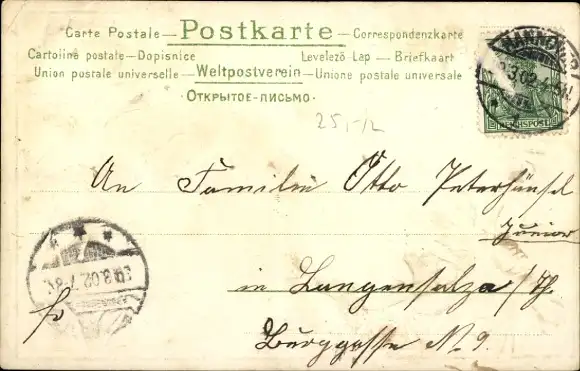 Carte Postale — Postkarte — Correspondenzkarte
Cartolina postale — Dopisnice Levelező Lap — Briefkaart
Union postale universelle — Weltpostverein — Unione postale universale
· ОТКРЫТОЕ-ПИСЬМО ·
HANNOVER
REICHSPOST
25,-/L
An Familie Otto Peterhänsel
Junior
in Langensalza / Th.
Burggasse N. 9.
fr